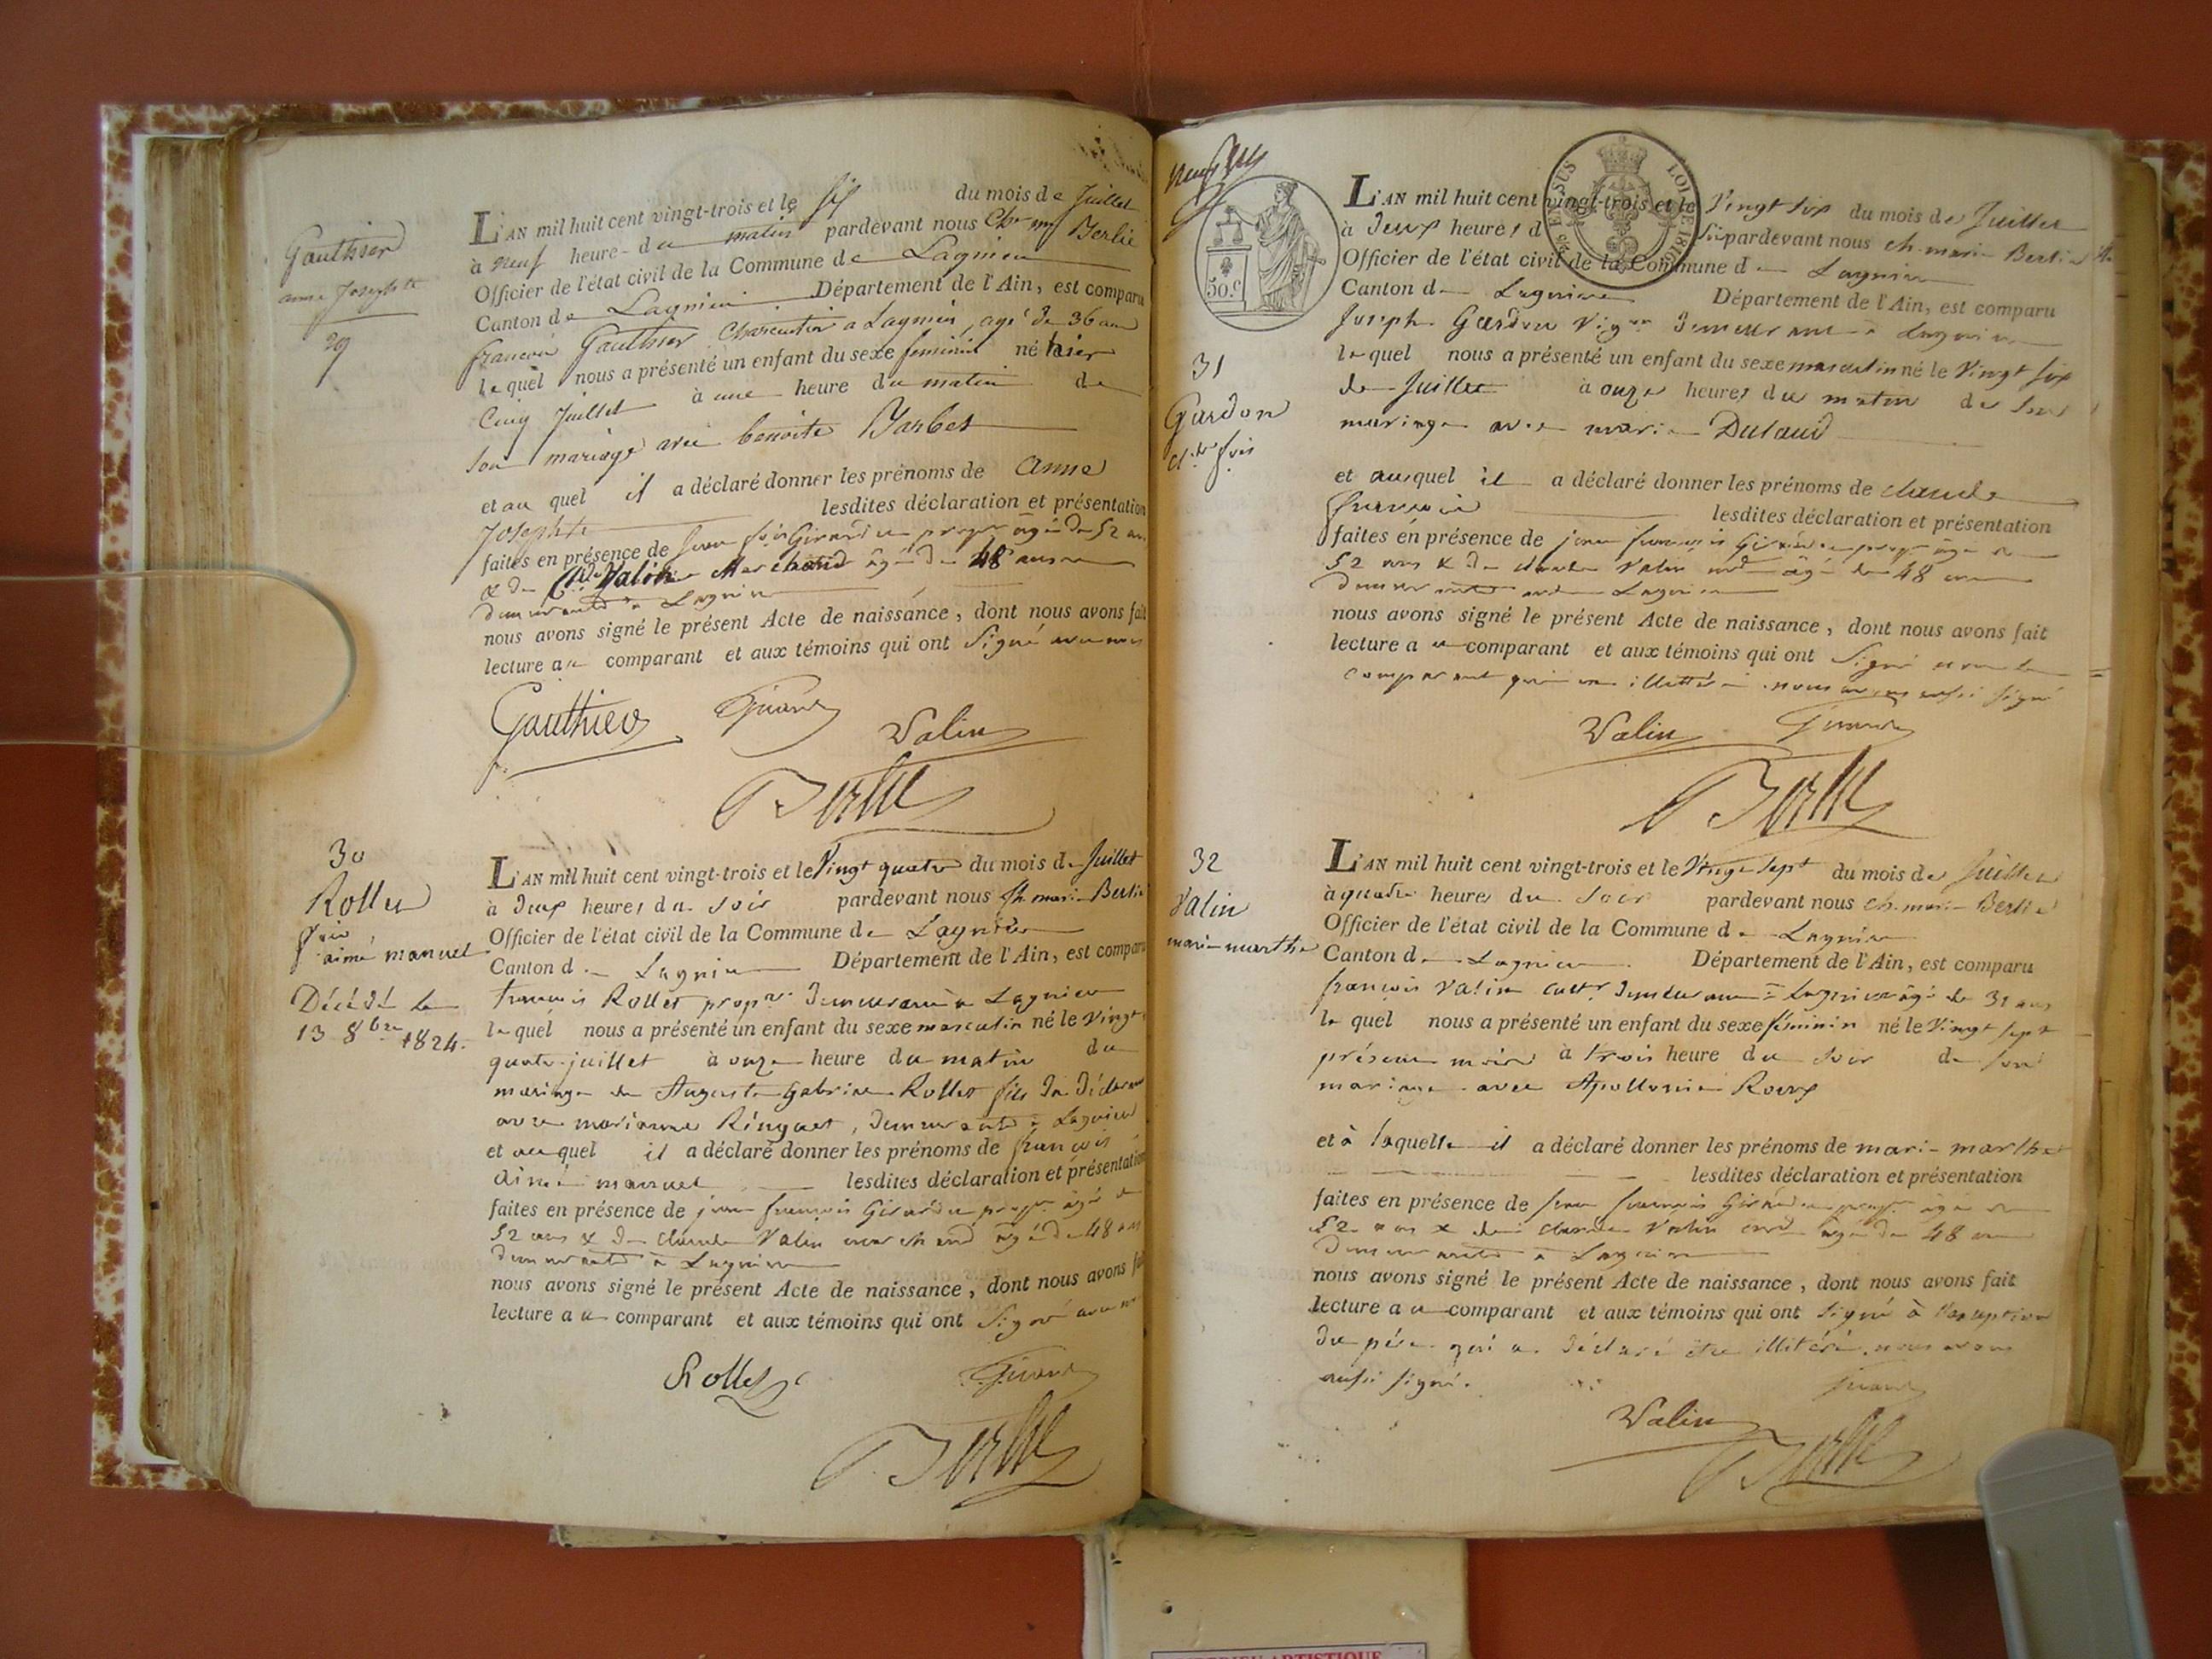 Gauthier
anne Josephte
29
L'AN mil huit cent vingt-trois et le six du mois de Juillet
à neuf heure du matin pardevant nous Berlie
Officier de l'état civil de la Commune de Lagnieu
Canton de Lagnieu Département de l'Ain, est comparu
françois Gauthier a Lagnieu, agé de 36 ans
lequel nous a présenté un enfant du sexe feminin né hier
Cinq Juillet à une heure du matin de
son mariage avec benoite Barbet
et au quel il a déclaré donner les prénoms de anne
Josephte lesdites déclaration et présentation
faites en présence de Jean fois Girard propre âgé de 52 ans
& de Cde Valin Marchand âgé de 48 ans
demeurants à Lagnieu
nous avons signé le présent Acte de naissance, dont nous avons fait
lecture au comparant et aux témoins qui ont Signé avec nous
Gauthier Girard Valin
Berlie
30
Rollet
fois
aimé manuel
Décédé le
13 8bre 1824.
L'AN mil huit cent vingt-trois et le Vingt quatre du mois de Juillet
à deux heures du soir pardevant nous Ch. marie Berlie
Officier de l'état civil de la Commune de Lagnieu
Canton de Lagnieu Département de l'Ain, est comparu
francois Rollet propre demeurant à Lagnieu
lequel nous a présenté un enfant du sexe masculin né le Vingt
quatre juillet à onze heure du matin du
mariage de Auguste Gabriel Rollet fils du déclarant
avec marianne Ringuet, demeurants à Lagnieu
et auquel il a déclaré donner les prénoms de françois
aimé manuel lesdites déclaration et présentation
faites en présence de jean françois Girard propre âgé de
52 ans & de claude Valin marchand âgé de 48 ans
demeurants à Lagnieu
nous avons signé le présent Acte de naissance, dont nous avons fait
lecture au comparant et aux témoins qui ont Signé avec nous
Rollet Girard
Berlie
50.c
31
Gardon
cl.de fois
L'AN mil huit cent vingt-trois et le Vingt six du mois de Juillet
à deux heures d pardevant nous ch. marie Berlie
Officier de l'état civil de la Commune de Lagnieu
Canton de Lagnieu Département de l'Ain, est comparu
Joseph Gardon Vigon demeurant à Lagnieu
lequel nous a présenté un enfant du sexe masculin né le Vingt six
de Juillet à onze heures du matin de son
mariage avec marie Dulaud
et auquel il a déclaré donner les prénoms de claude
francois lesdites déclaration et présentation
faites en présence de jean françois Girard propre âgé de
52 ans & de claude Valin md âgé de 48 ans
demeurants Lagnieu
nous avons signé le présent Acte de naissance, dont nous avons fait
lecture au comparant et aux témoins qui ont Signé
comparant illettré nous avons aussi signé
Valin Girard
Berlie
32
Valin
marie marthe
L'AN mil huit cent vingt-trois et le Vingt sept du mois de Juillet
à quatre heures du soir pardevant nous ch. marie Berlie
Officier de l'état civil de la Commune de Lagnieu
Canton de Lagnieu Département de l'Ain, est comparu
françois Valin cultr demeurant à Lagnieu âgé de 31 ans
lequel nous a présenté un enfant du sexe féminin né le Vingt sept
présent mois à trois heure du soir de son
mariage avec Apollonie Roux
et à laquelle il a déclaré donner les prénoms de marie marthe
lesdites déclaration et présentation
faites en présence de jean francois Girard propre âgé de
52 ans & de claude Valin md âgé de 48 ans
demeurants à Lagnieu
nous avons signé le présent Acte de naissance, dont nous avons fait
lecture au comparant et aux témoins qui ont signé à l'exception
du père qui a déclaré être illitéré. nous avons
aussi signé.
Girard
Valin
Berlie